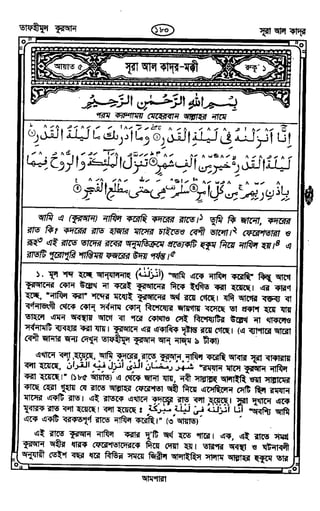 তাফহীমুল কুরআন
১৮৩
সূরা আল কাদর
আয়াত ৫
সূরা আল কাদর-মক্কী
রুকূ' ১
بِسْمِ اللهِ الرَّحْمٰنِ الرَّحِيْمِ
পরম করুণাময় মেহেরবান আল্লাহর নামে
إِنَّا أَنْزَلْنٰهُ فِى لَيْلَةِ الْقَدْرِ ۝ وَمَا أَدْرٰىكَ مَا لَيْلَةُ الْقَدْرِ ۝
لَيْلَةُ الْقَدْرِ خَيْرٌ مِّنْ أَلْفِ شَهْرٍ ۝ تَنَزَّلُ الْمَلٰٓئِكَةُ وَالرُّوْحُ فِيْهَا
بِإِذْنِ رَبِّهِمْ مِّنْ كُلِّ أَمْرٍ ۝ سَلٰمٌ هِىَ حَتّٰى مَطْلَعِ الْفَجْرِ ۝
আমি এ (কুরআন) নাযিল করেছি কদরের রাতে।১ তুমি কি জানো, কদরের
রাত কি? কদরের রাত হাজার মাসের চাইতেও বেশী ভালো।২ ফেরেশতারা ও
রূহ৩ এই রাতে তাদের রবের অনুমতিক্রমে প্রত্যেকটি হুকুম নিয়ে নাযিল হয়।৪ এ
রাতটি পুরোপুরি শান্তিময় ফজরের উদয় পর্যন্ত।৫
১. মূল শব্দ হচ্ছে আন্‌যালনাহু (أَنْزَلْنٰهُ) "আমি একে নাযিল করেছি" কিন্তু আগে
কুরআনের কোন উল্লেখ না করেই কুরআনের দিকে ইংগিত করা হয়েছে। এর কারণ
হচ্ছে, "নাযিল করা" শব্দের মধ্যেই কুরআনের অর্থ রয়ে গেছে। যদি আগের বক্তব্য বা
বর্ণনাভংগী থেকে কোন্ সর্বনাম কোন্ বিশেষ্যের জায়গায় বসেছে তা প্রকাশ হয়ে যায়
তাহলে এমন অবস্থায় আগে বা পরে কোথাও সেই বিশেষ্যটির উল্লেখ না থাকলেও
সর্বনামটি ব্যবহার করা যায়। কুরআনে এর একাধিক দৃষ্টান্ত রয়ে গেছে। (এ ব্যাপারে আরো
বেশী জানার জন্য দেখুন তাফহীমুল কুরআন আন নাজম ৯ টীকা)
এখানে বলা হয়েছে, আমি কদরের রাতে কুরআন নাযিল করেছি আবার সূরা বাকারায়
বলা হয়েছে, شَهْرُ رَمَضَانَ الَّذِىْ أُنْزِلَ فِيْهِ الْقُرْآنُ "রমযান মাসে কুরআন নাযিল
করা হয়েছে।" (১৮৫ আয়াত) এ থেকে জানা যায়, নবী সাল্লাল্লাহু আলাইহি ওয়া সাল্লামের
কাছে হেরা গুহায় যে রাতে আল্লাহর ফেরেশতা অহী নিয়ে এসেছিলেন সেটি ছিল রমযান
মাসের একটি রাত। এই রাতকে এখানে কদরের রাত বলা হয়েছে। সূরা দুখানে একে
মুবারক রাত বলা হয়েছে। বলা হয়েছেঃ إِنَّا أَنْزَلْنٰهُ فِىْ لَيْلَةٍ مُّبٰرَكَةٍ "অবশ্যি আমি
একে একটি বরকতপূর্ণ রাতে নাযিল করেছি।" (৩ আয়াত)
এই রাতে কুরআন নাযিল করার দু'টি অর্থ হতে পারে। এক, এই রাতে সমগ্র
কুরআন অহীর ধারক ফেরেশতাদেরকে দিয়ে দেয়া হয়। তারপর অবস্থা ও ঘটনাবলী
অনুযায়ী তেইশ বছর ধরে বিভিন্ন সময়ে জিব্রীল আলাইহিস সালাম আল্লাহর হুকুমে তার
আমপারা